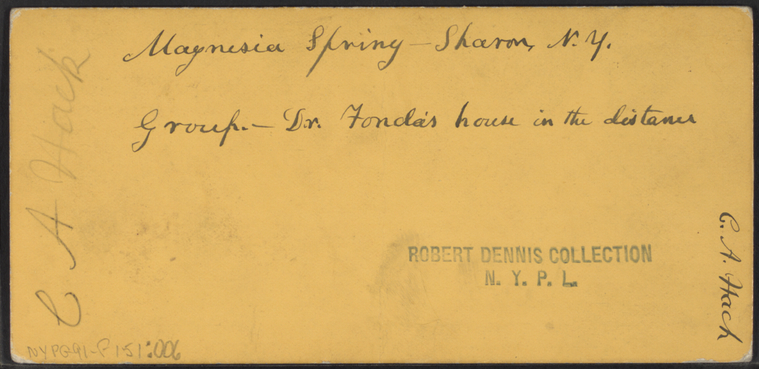 Magnesia Spring – Sharon, N. Y.
Group. – Dr. Fonda's house in the distance
C A Hack
C. A. Hack
ROBERT DENNIS COLLECTION
N. Y. P. L.
NYPG91-F151:006